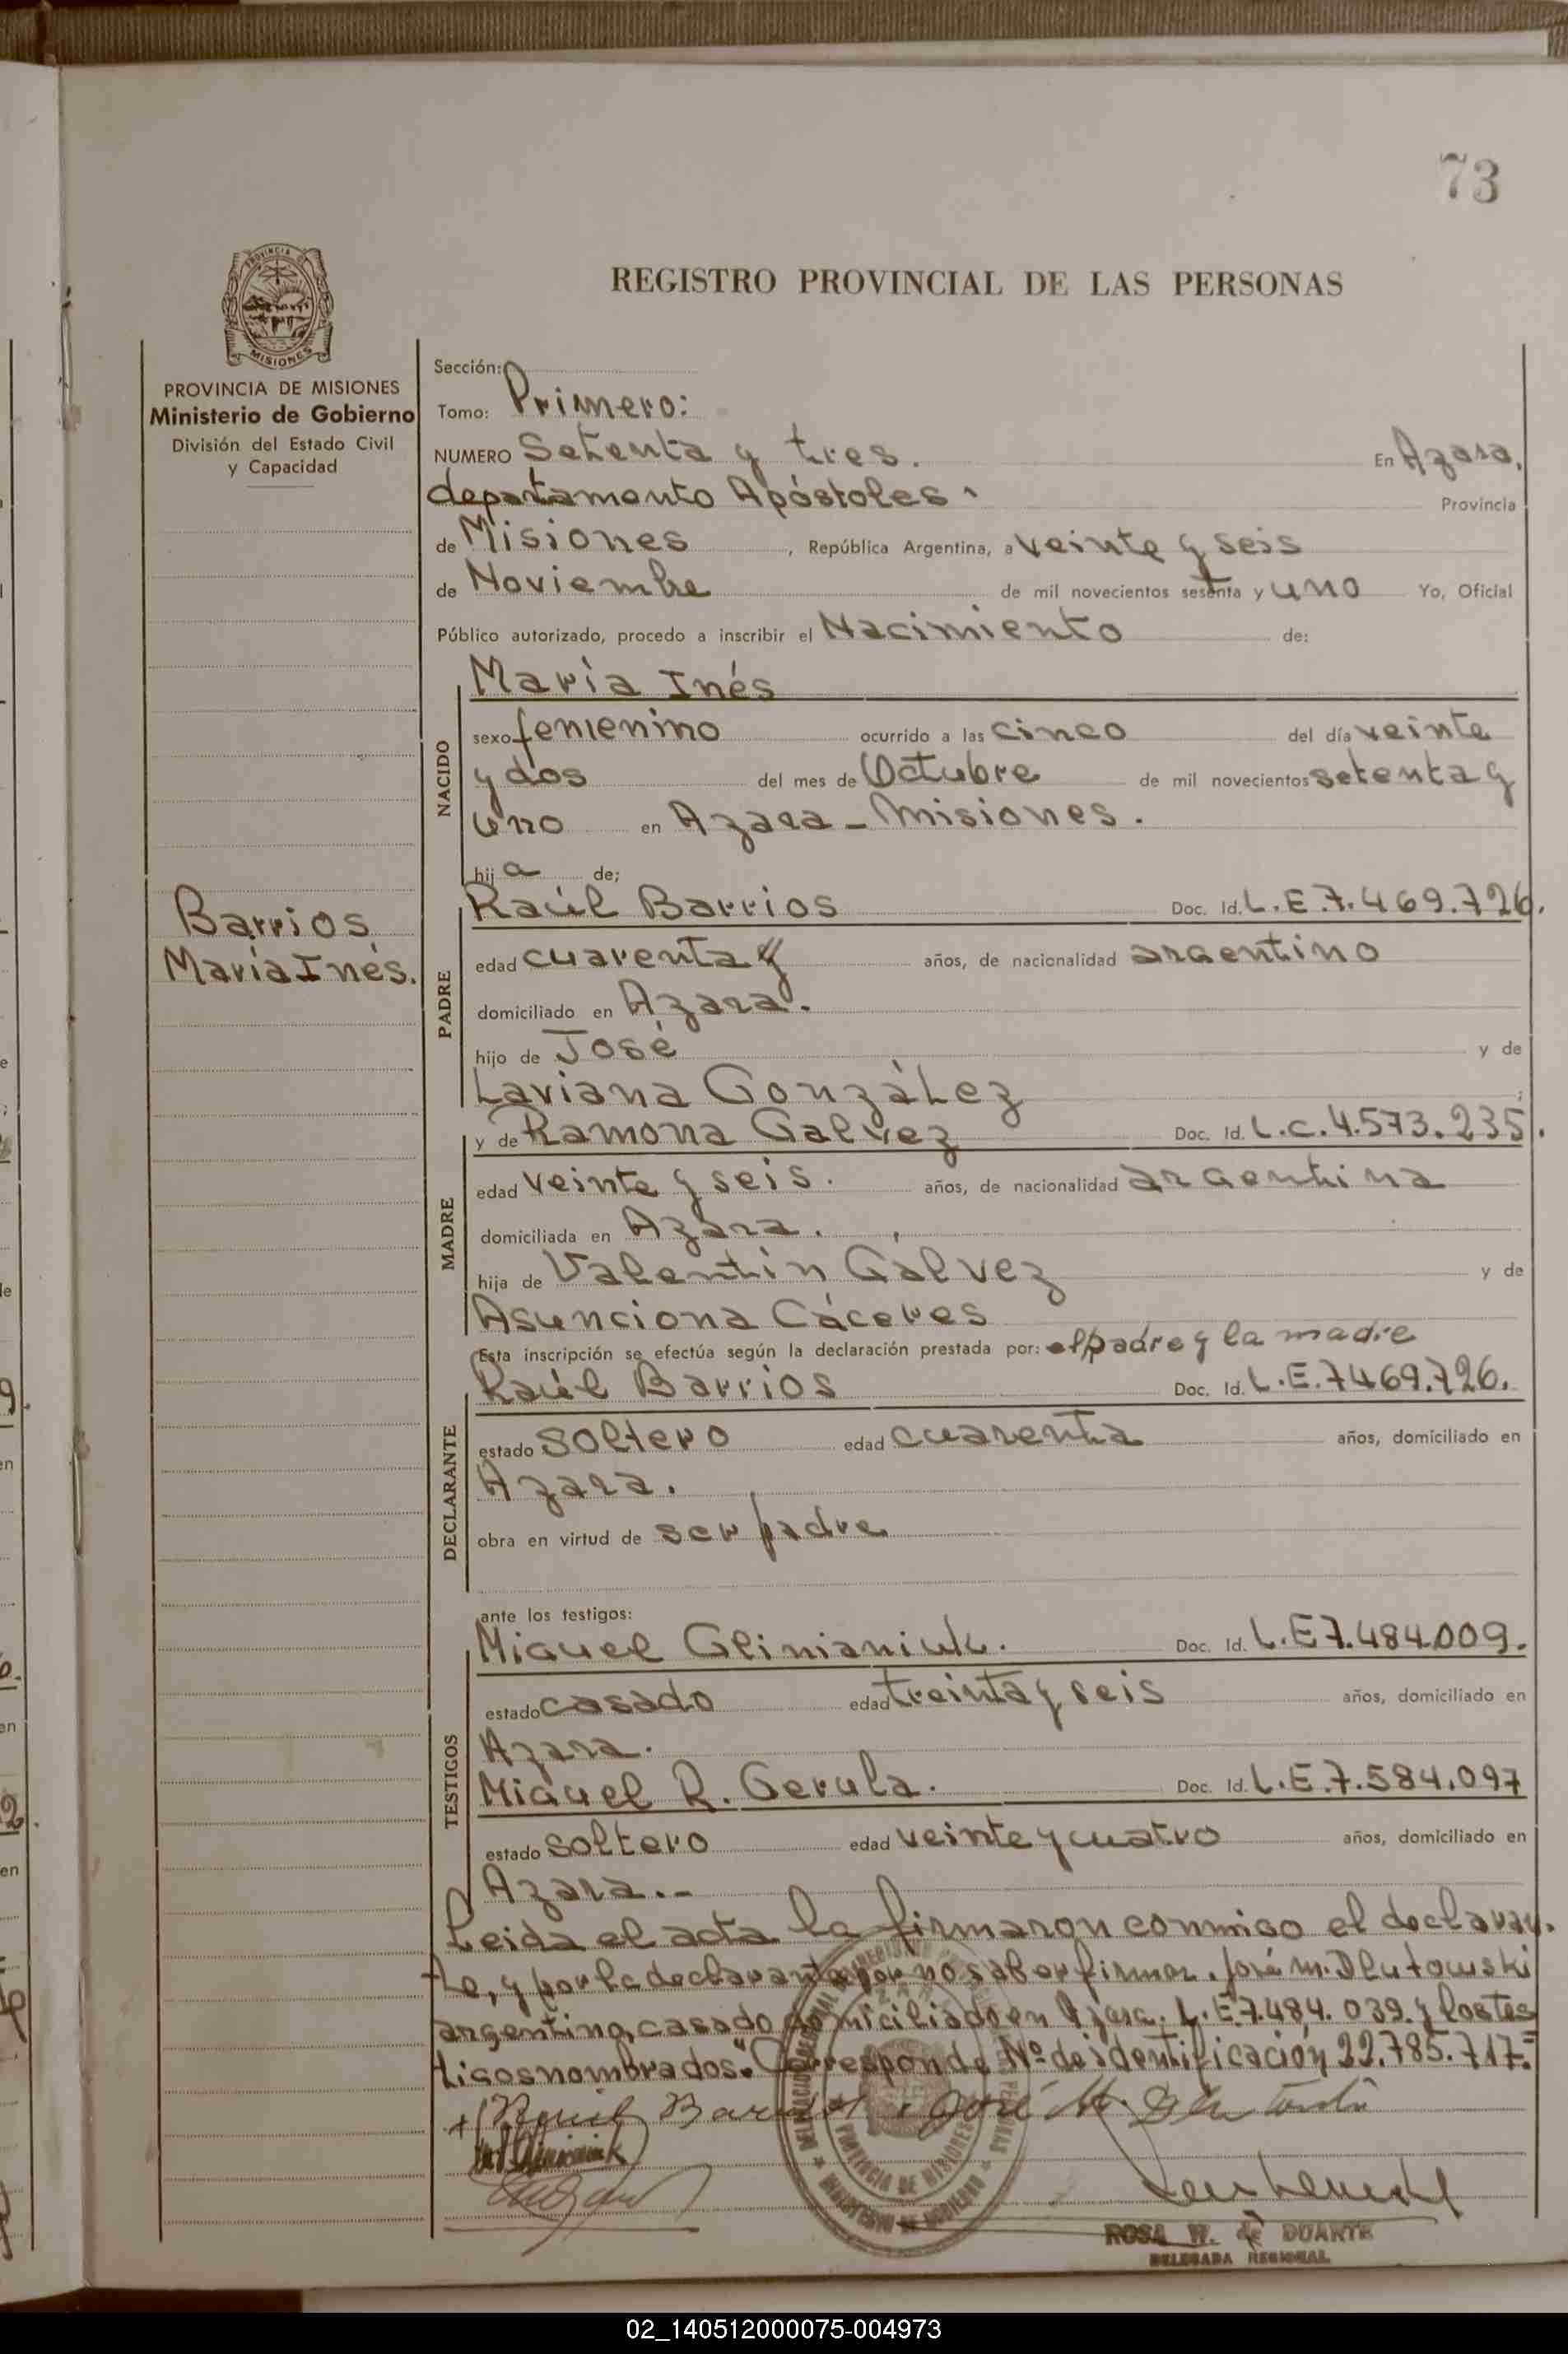 73
REGISTRO PROVINCIAL DE LAS PERSONAS
PROVINCIA
MISIONES
PROVINCIA DE MISIONES
Ministerio de Gobierno
División del Estado Civil
y Capacidad
Barrios
María Inés.
Sección:
Tomo: Primero:
NUMERO Setenta y tres. En Azara,
departamento Apóstoles. Provincia
de Misiones, República Argentina, a veinte y seis
de Noviembre de mil novecientos sesenta y uno Yo, Oficial
Público autorizado, procedo a inscribir el Nacimiento de:
NACIDO
María Inés
sexo femenino ocurrido a las cinco del día veinte
y dos del mes de Octubre de mil novecientos setenta y
uno en Azara - Misiones.
hija de;
PADRE
Raúl Barrios Doc. Id. L.E.7.469.726.
edad cuarenta y años, de nacionalidad argentino
domiciliado en Azara.
hijo de José y de
Laviana González ;
MADRE
y de Ramona Galvez Doc. Id. L.C.4.573.235.
edad veinte y seis. años, de nacionalidad argentina
domiciliada en Azara.
hija de Valentín Gálvez y de
Asunciona Cáceres
Esta inscripción se efectúa según la declaración prestada por: el padre y la madre
DECLARANTE
Raúl Barrios Doc. Id. L.E.7469.726.
estado soltero edad cuarenta años, domiciliado en
Azara.
obra en virtud de ser padre
ante los testigos:
TESTIGOS
Miguel Glinianiuk. Doc. Id. L.E7.484.009.
estado casado edad treinta y seis años, domiciliado en
Azara.
Miguel R. Gerula. Doc. Id. L.E.7.584.097
estado soltero edad veinte y cuatro años, domiciliado en
Azara.-
Leida el acta la firmaron conmigo el declaran-
te, y por la declarante por no saber firmar. José M. Dlutowski
argentino, casado domiciliado en Azara. L.E.7.484.039. y los tes
tigos nombrados." Corresponde Nº de identificación 22.785.717.=
Raúl Barrios José M.
PROVINCIA DE MISIONES
MINISTERIO DE GOBIERNO
ROSA W. de DUARTE
DELEGADA REGIONAL
02_140512000075-004973